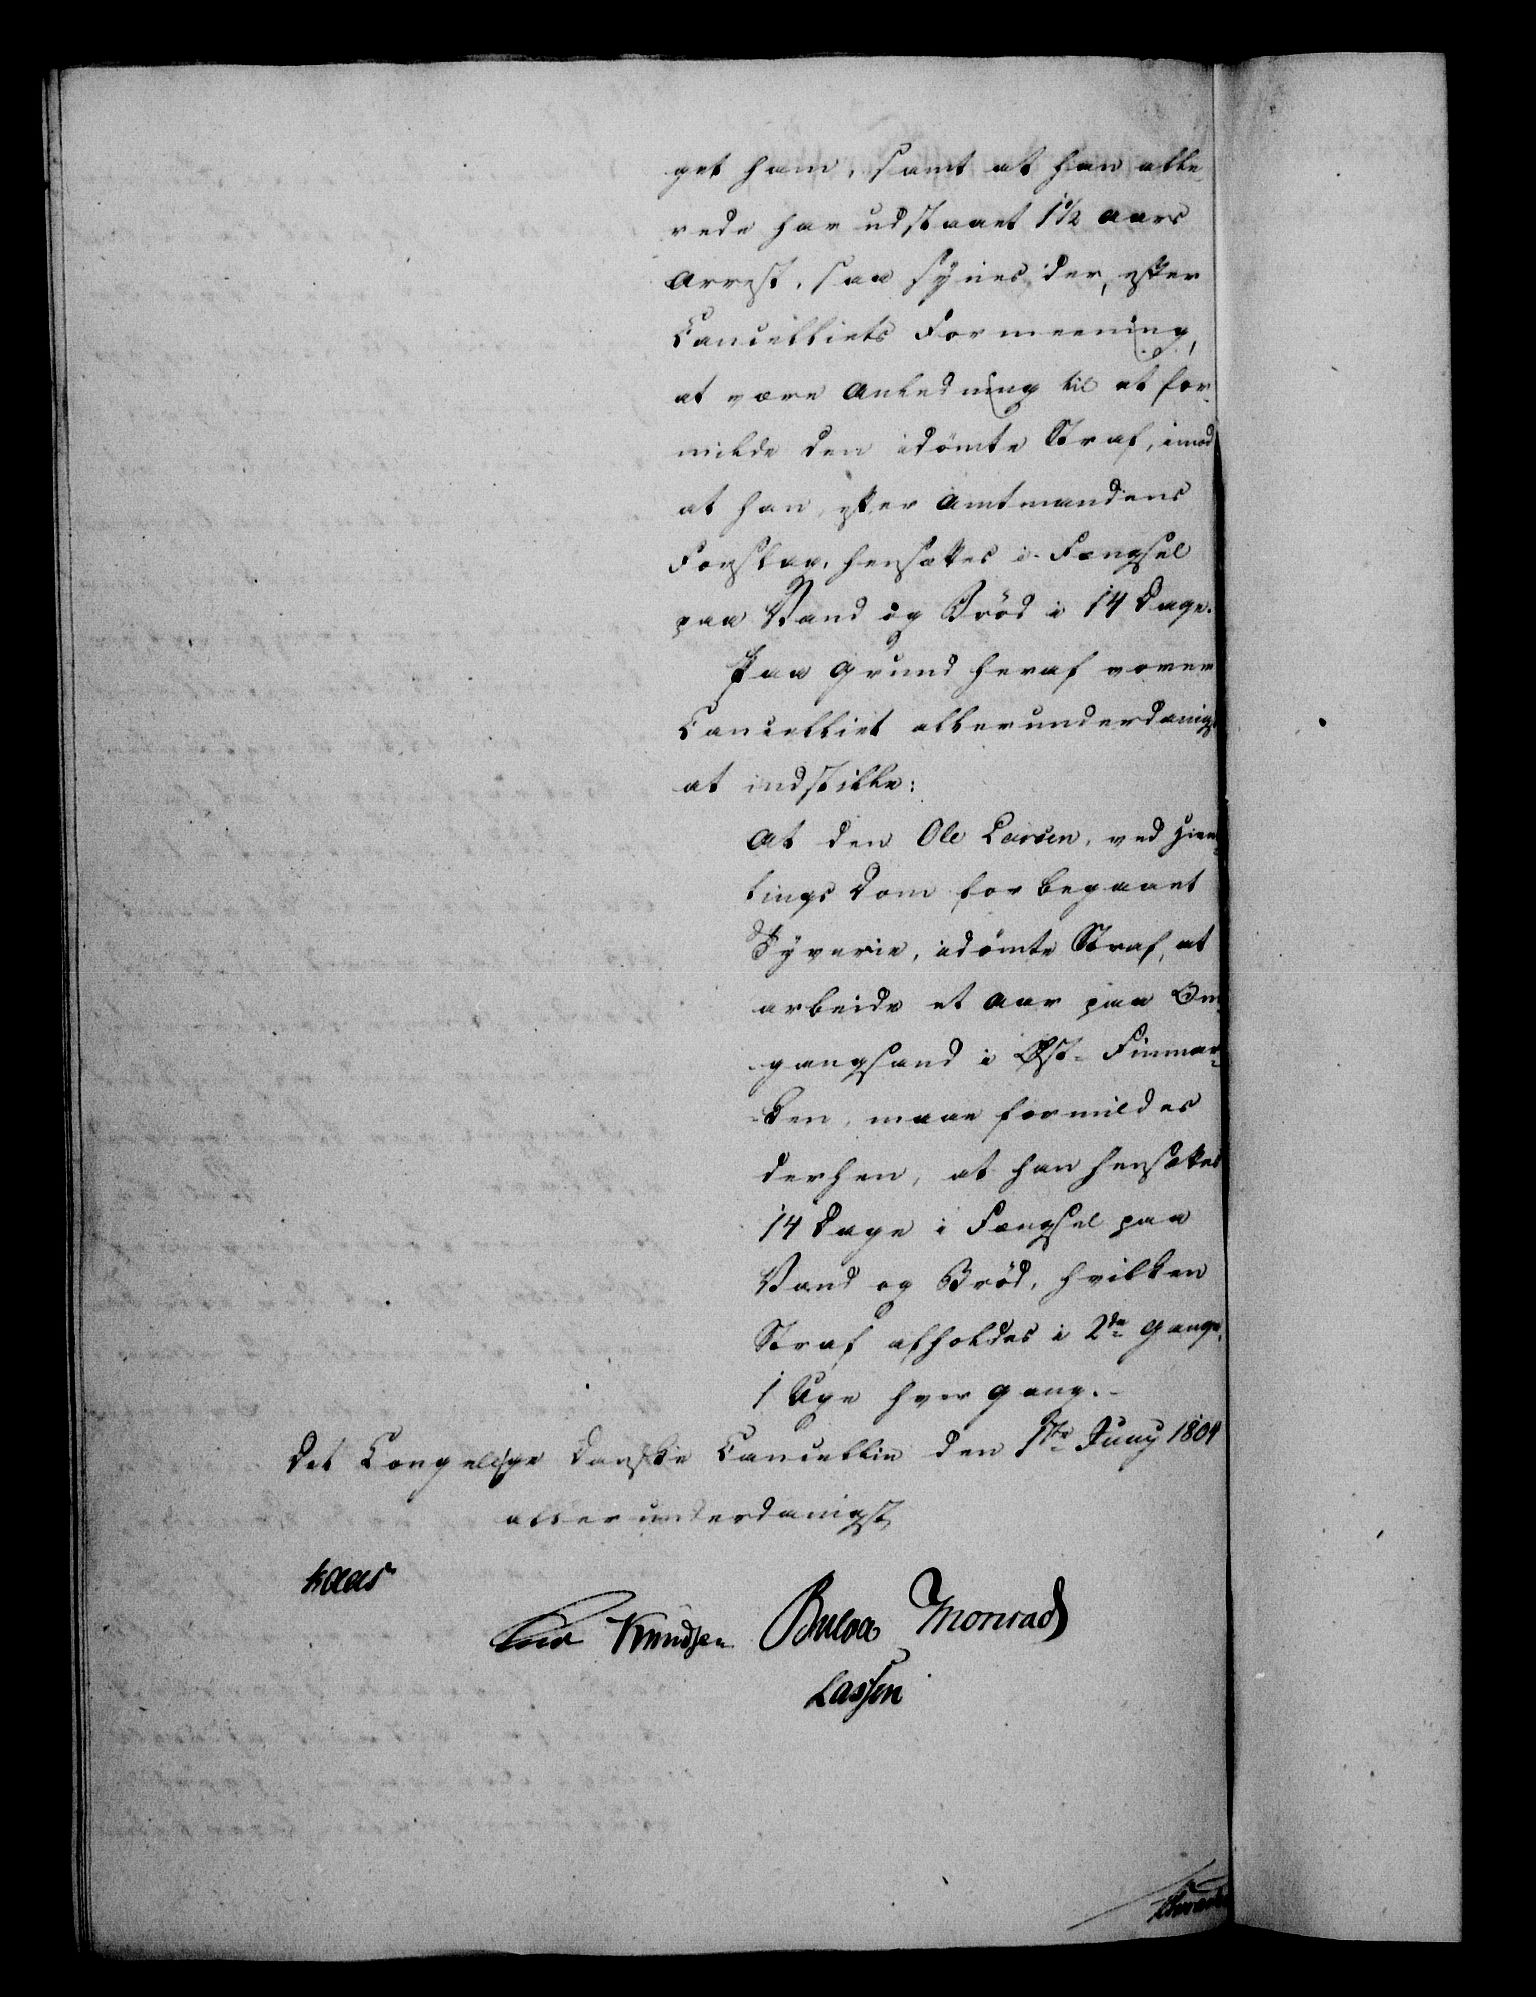 get ham, samt at han alle¬
rede har udstaaet 1 1/2 Aars
Arrest, saa synes der, efter
Cancelliets Formeening,
at være Anledning til at for¬
milde den idömte Straf, imod
at han, efter Amtmandens
Forslag, hensættes i Fængsel
paa Vand og Bröd i 14 Dage.
Paa Grund heraf vover
Cancelliet allerunderdanigst
at indstille:
At den Ole Larsen, ved Hiem¬
tings Dom for begaaet
Tyverie, idömte Straf, at
arbeide et Aar paa Om¬
gangsand i Öst-Finmar¬
ken, maae formildes
derhen, at han hensættes
14 Dage i Fængsel paa
Vand og Bröd, hvilken
Straf afholdes i 2de Gange,
1 Uge hver Gang.-
Det Kongelige Danske Cancellie den 1ste Juny 1804
allerunderdanigst
Kaas
Knudsen Bülow Monrad
Lassen